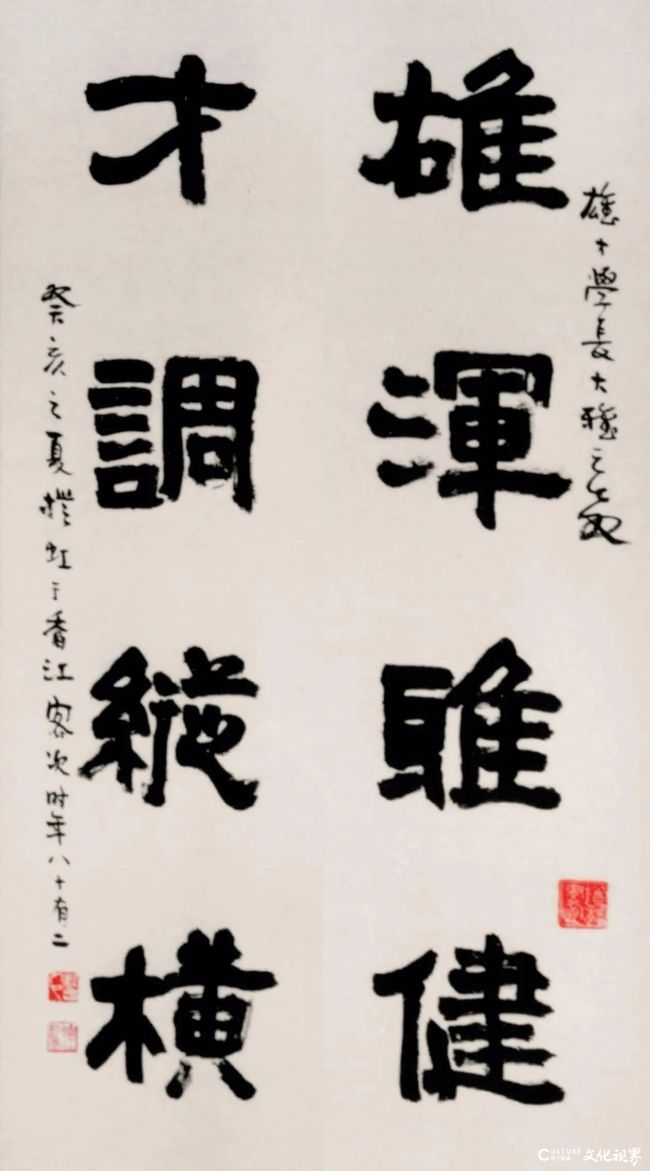 雄才學長大雅之
雄渾雅健
才調縱橫
癸亥之夏虹于香江客次时年八十有二
CULTURE
CHINA
文化视界